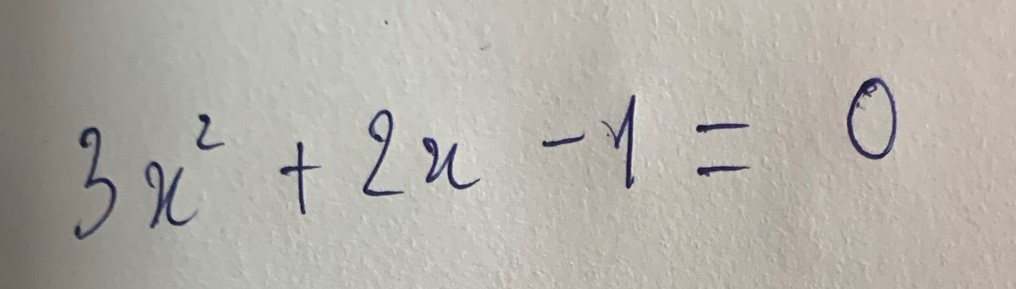 3x² + 2x - 1 = 0